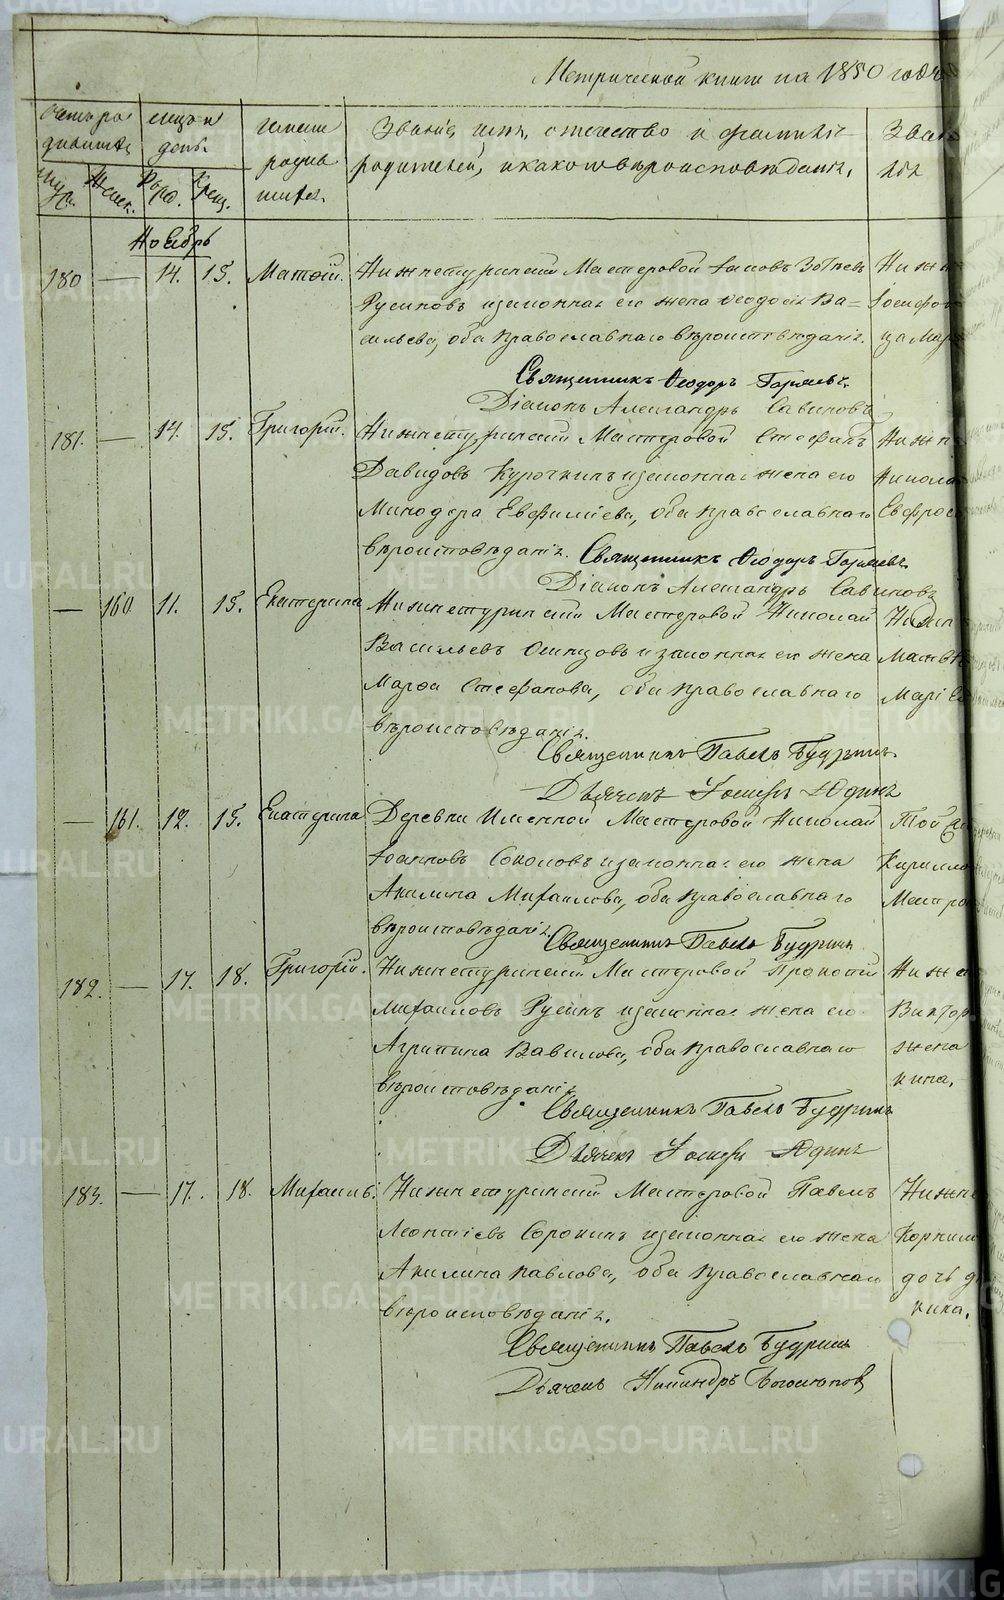 Метрической книги на 1850 годъ
Счетъ ро
дившихся
Мѣсяцъ и
день.
Имена
родив
шихся.
Званіе, имя, отечество и фамилія
родителей, и какого вѣроисповѣданія.
Зван
Муж. Женск. Рожд. Крещ.
Ноябрь
180 — 14. 15. Матѳій. Нижнетуринскій Мастеровой Іаковъ Зотѣевъ Нижн
Русиновъ и законная его жена Ѳеодосія Ва= Іосифов
сильева, оба православнаго вѣроисповѣданія. ца Мар
Священникъ Ѳеодоръ
Діаконъ Александръ Савиновъ
181. — 14. 15. Григорій. Нижнетуринскій Мастеровой Стефанъ Нижн
Давидовъ Курочкинъ и законная жена его Никола
Минодора Евфиміева, оба православнаго Евфрос
вѣроисповѣданія. Священникъ Ѳеодоръ
Діаконъ Александръ Савиновъ
— 160 11. 15. Екатерина Нижнетуринскій Мастеровой Николай Нижн
Васильевъ Осинцовъ и законная его жена Матвѣ
Марѳа Стефанова, оба православнаго Марі
вѣроисповѣданія.
Священникъ Павелъ Будринъ
Дьячекъ Іосифъ Юдинъ
— 161. 12. 15. Екатерина Деревни Именной Мастеровой Николай Той
Іоанновъ Соколовъ и законная его жена Кирилло
Акилина Михаилова, оба православнаго Матро
вѣроисповѣданія.
Священникъ Павелъ Будринъ
182. — 17. 18. Григорій. Нижнетуринскій Мастеровой Прокопій Нижн
Михаиловъ Русинъ и законная жена его Виктор
Агрипина Вавилова, оба православнаго жена
вѣроисповѣданія. кина.
Священникъ Павелъ Будринъ
Дьячекъ Іосифъ Юдинъ
183. — 17. 18. Михаилъ. Нижнетуринскій Мастеровой Павелъ Нижне
Леонтіевъ Сорокинъ и законная его жена Корнил
Акилина Павлова, оба православнаго дочь д
вѣроисповѣданія. кина.
Священникъ Павелъ Будринъ
Дьячекъ Никандръ
METRIKI.GASO-URAL.RU